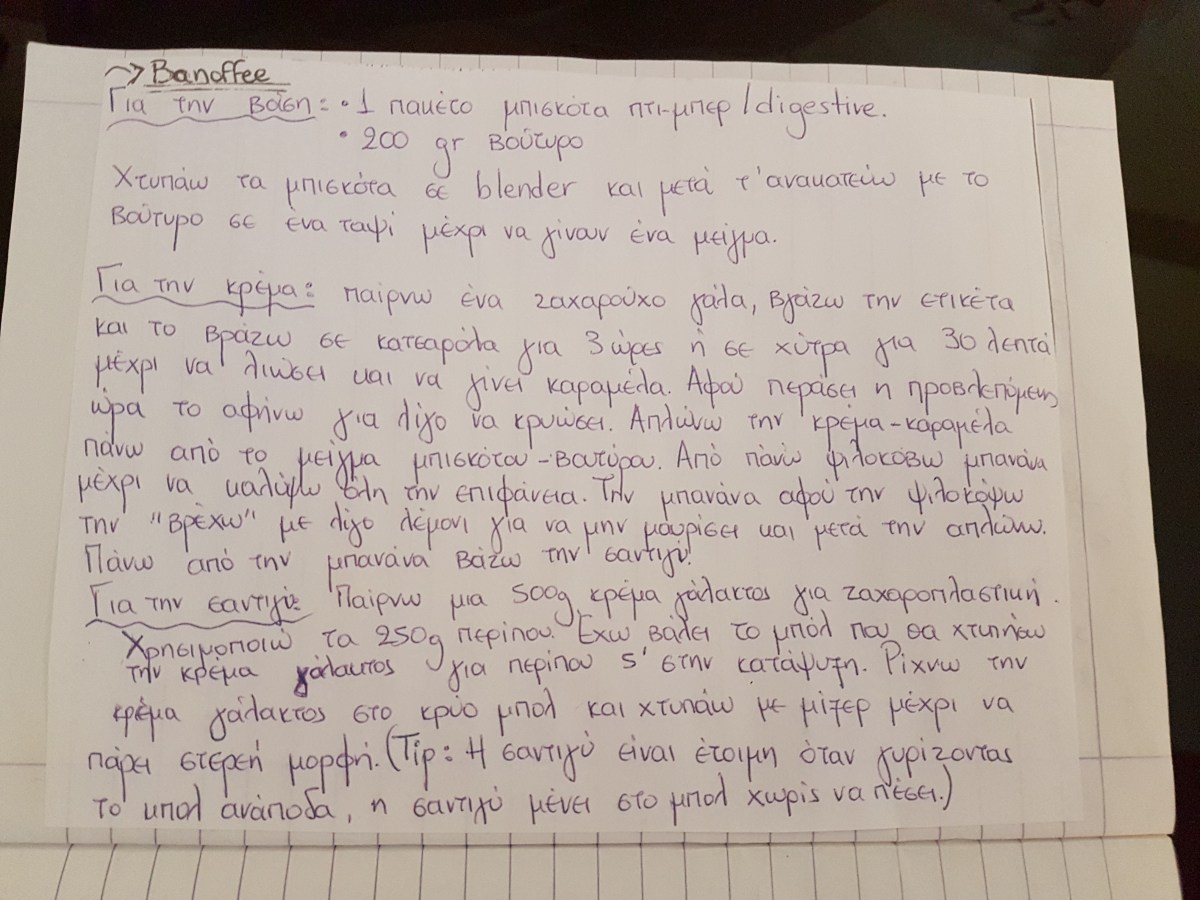 → Banoffee
Για την βάση: • 1 πακέτο μπισκότα πτι-μπερ/digestive.
• 200 gr βούτυρο
Χτυπάω τα μπισκότα σε blender και μετά τ'ανακατεύω με το
βούτυρο σε ένα ταψί μέχρι να γίνουν ένα μείγμα.
Για την κρέμα: παίρνω ένα ζαχαρούχο γάλα, βγάζω την ετικέτα
και το βράζω σε κατσαρόλα για 3 ώρες ή σε χύτρα για 30 λεπτά
μέχρι να λιώσει και να γίνει καραμέλα. Αφού περάσει η προβλεπόμενη
ώρα το αφήνω για λίγο να κρυώσει. Απλώνω την κρέμα-καραμέλα
πάνω από το μείγμα μπισκότου-βουτύρου. Από πάνω ψιλοκόβω μπανάνα
μέχρι να καλύψω όλη την επιφάνεια. Την μπανάνα αφού την ψιλοκόψω
την "βρέχω" με λίγο λεμόνι για να μην μαυρίσει και μετά την απλώνω.
Πάνω από την μπανάνα βάζω την σαντιγύ.
Για την σαντιγύ: Παίρνω μια 500g κρέμα γάλακτος για ζαχαροπλαστική.
Χρησιμοποιώ τα 250g περίπου. Έχω βάλει το μπολ που θα χτυπήσω
την κρέμα γάλακτος για περίπου 5' στην κατάψυξη. Ρίχνω την
κρέμα γάλακτος στο κρύο μπολ και χτυπάω με μίξερ μέχρι να
πάρει στερεή μορφή. (Tip: Η σαντιγύ είναι έτοιμη όταν γυρίζοντας
το μπολ ανάποδα, η σαντιγύ μένει στο μπολ χωρίς να πέσει.)